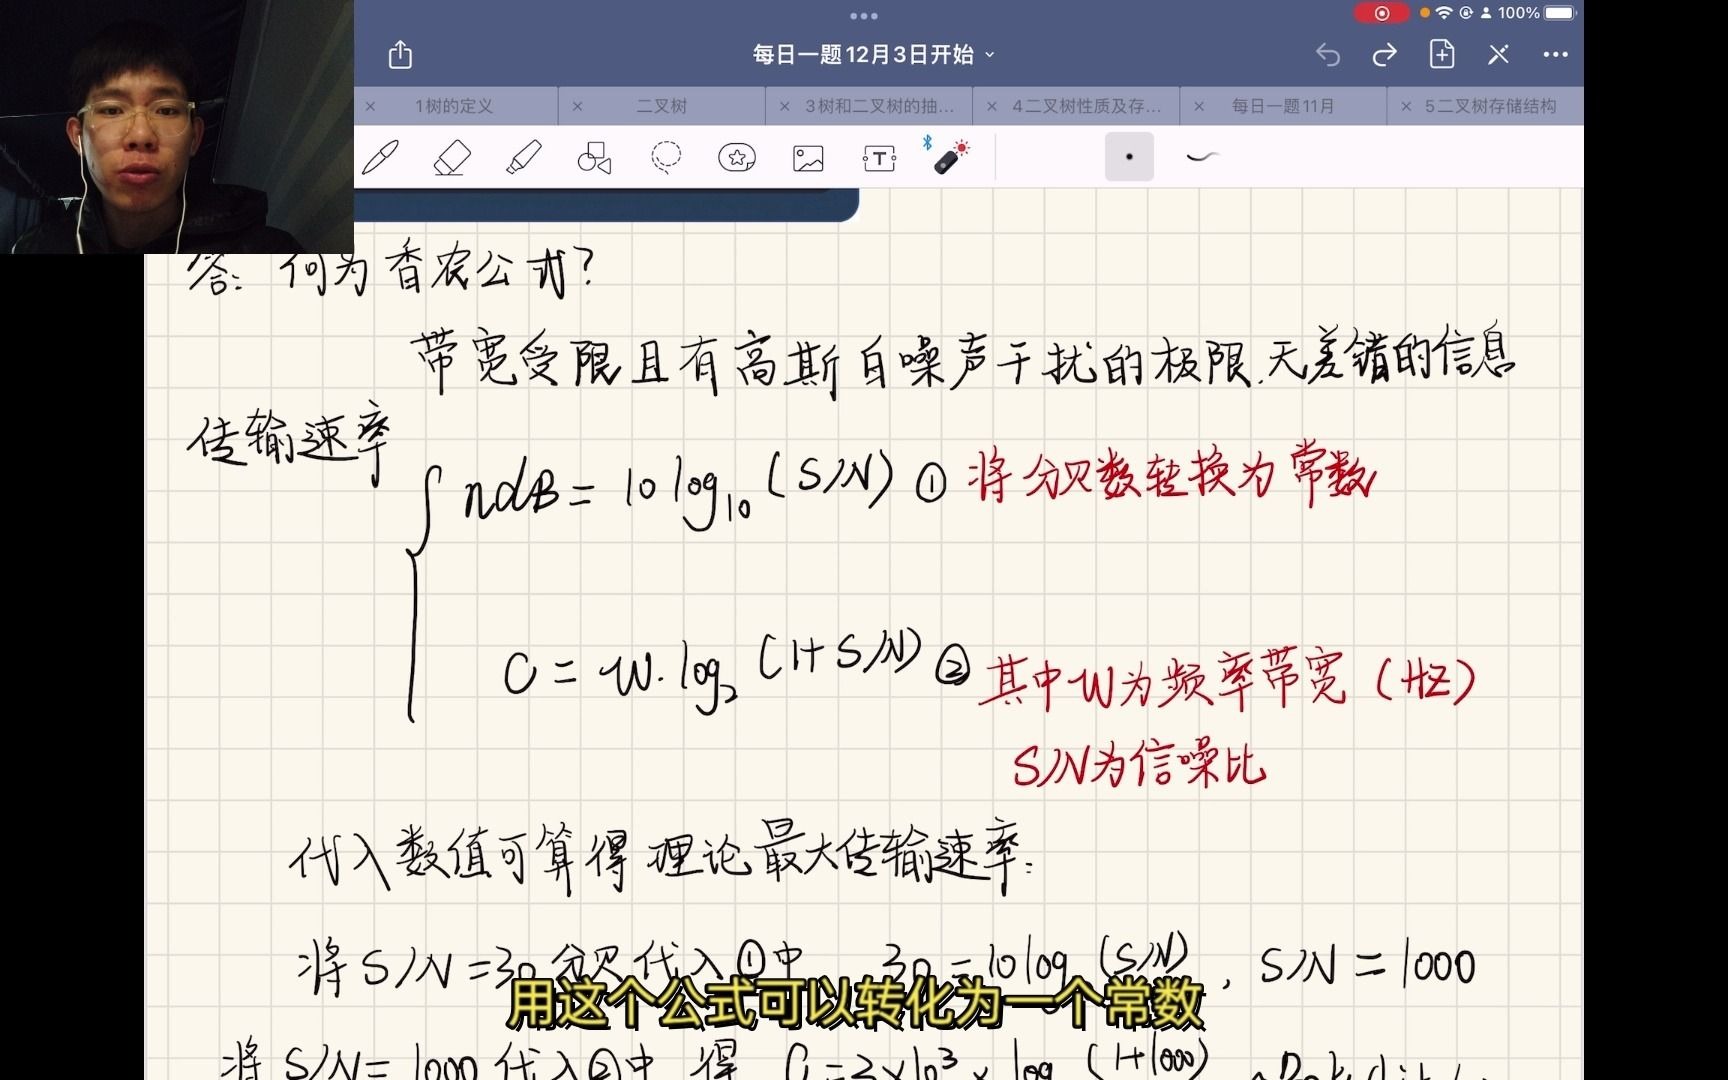 100%
每日一题12月3日开始
1树的定义
二叉树
3树和二叉树的抽...
4二叉树性质及存...
每日一题11月
5二叉树存储结构
T
答: 何为香农公式?
带宽受限且有高斯白噪声干扰的极限.无差错的信息
传输速率
ndB = 10 log₁₀ (S/N) ① 将分贝数转换为常数
C = W. log₂ (1+S/N) ② 其中W为频率带宽 (HZ)
S/N为信噪比
代入数值可算得理论最大传输速率:
将 S/N =30分贝代入①中 30 = 10 log (S/N) , S/N = 1000
用这个公式可以转化为一个常数
将 S/N = 1000 代入②中 得 C = 3×10³ × log (1+1000)